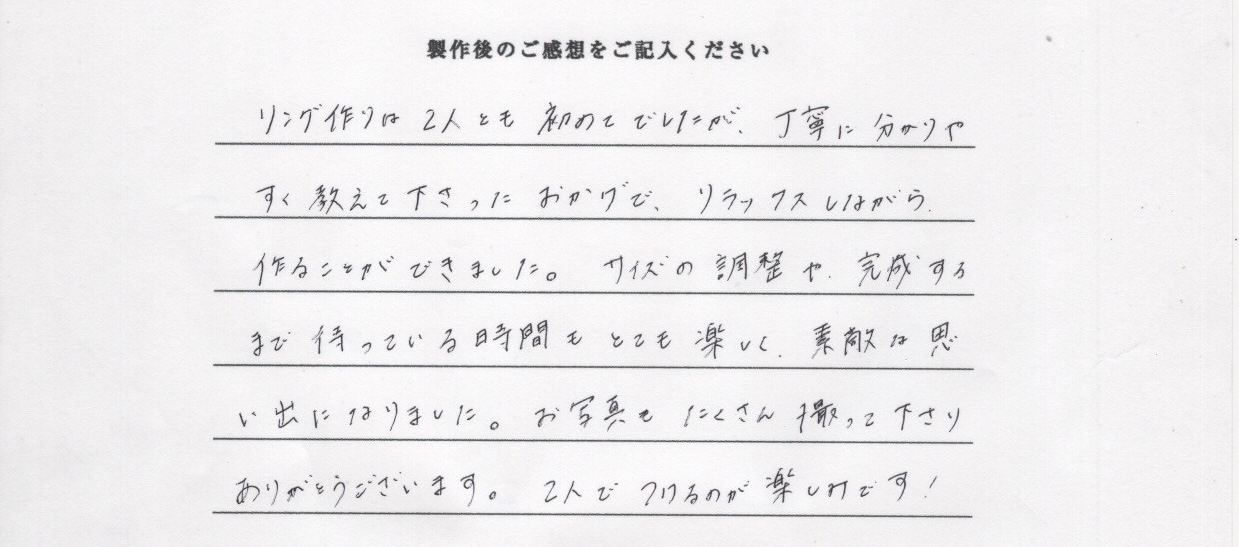 製作後のご感想をご記入ください
リング作りは2人とも初めてでしたが、丁寧に分かりや
すく教えて下さったおかげで、リラックスしながら
作ることができました。サイズの調整や、完成する
まで待っている時間もとても楽しく、素敵な思
い出になりました。お写真もたくさん撮って下さり
ありがとうございます。2人でつけるのが楽しみです!